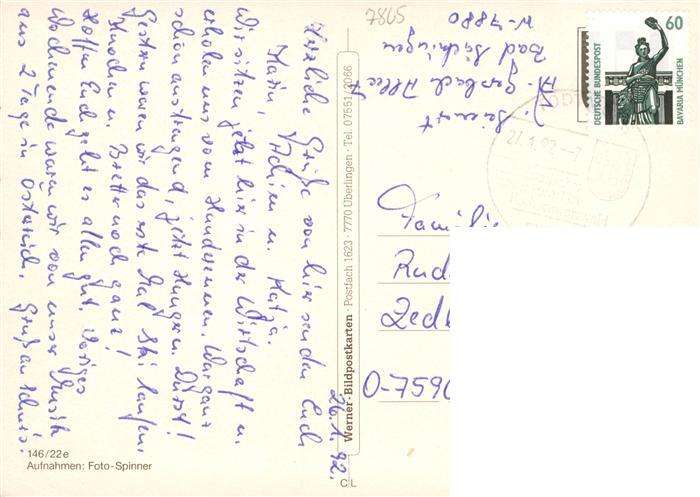 7865
60
DEUTSCHE BUNDESPOST
BAVARIA MÜNCHEN
Bad Säckingen
W-7880
Herzliche Grüße von hier senden Euch
Karin, Achim u. Katja.
Wir sitzen jetzt hier in der Wirtschaft u.
erholen uns vom Hunderennen. War ganz
schön anstrengend, jetzt Hunger u. Durst!
Gestern waren wir das erste Mal Ski laufen,
Knochen u. Bretter noch ganz!
Hoffe Euch geht es allen gut. Voriges
Wochenende waren wir von unser Musik
aus 2 Tage in Österreich. Gruß an Schni's.
26.1.92.
Werner-Bildpostkarten · Postfach 1623 · 7770 Überlingen · Tel. 07551/2066
Rud
Zedl
O-7590
146/22e
Aufnahmen: Foto-Spinner
CL